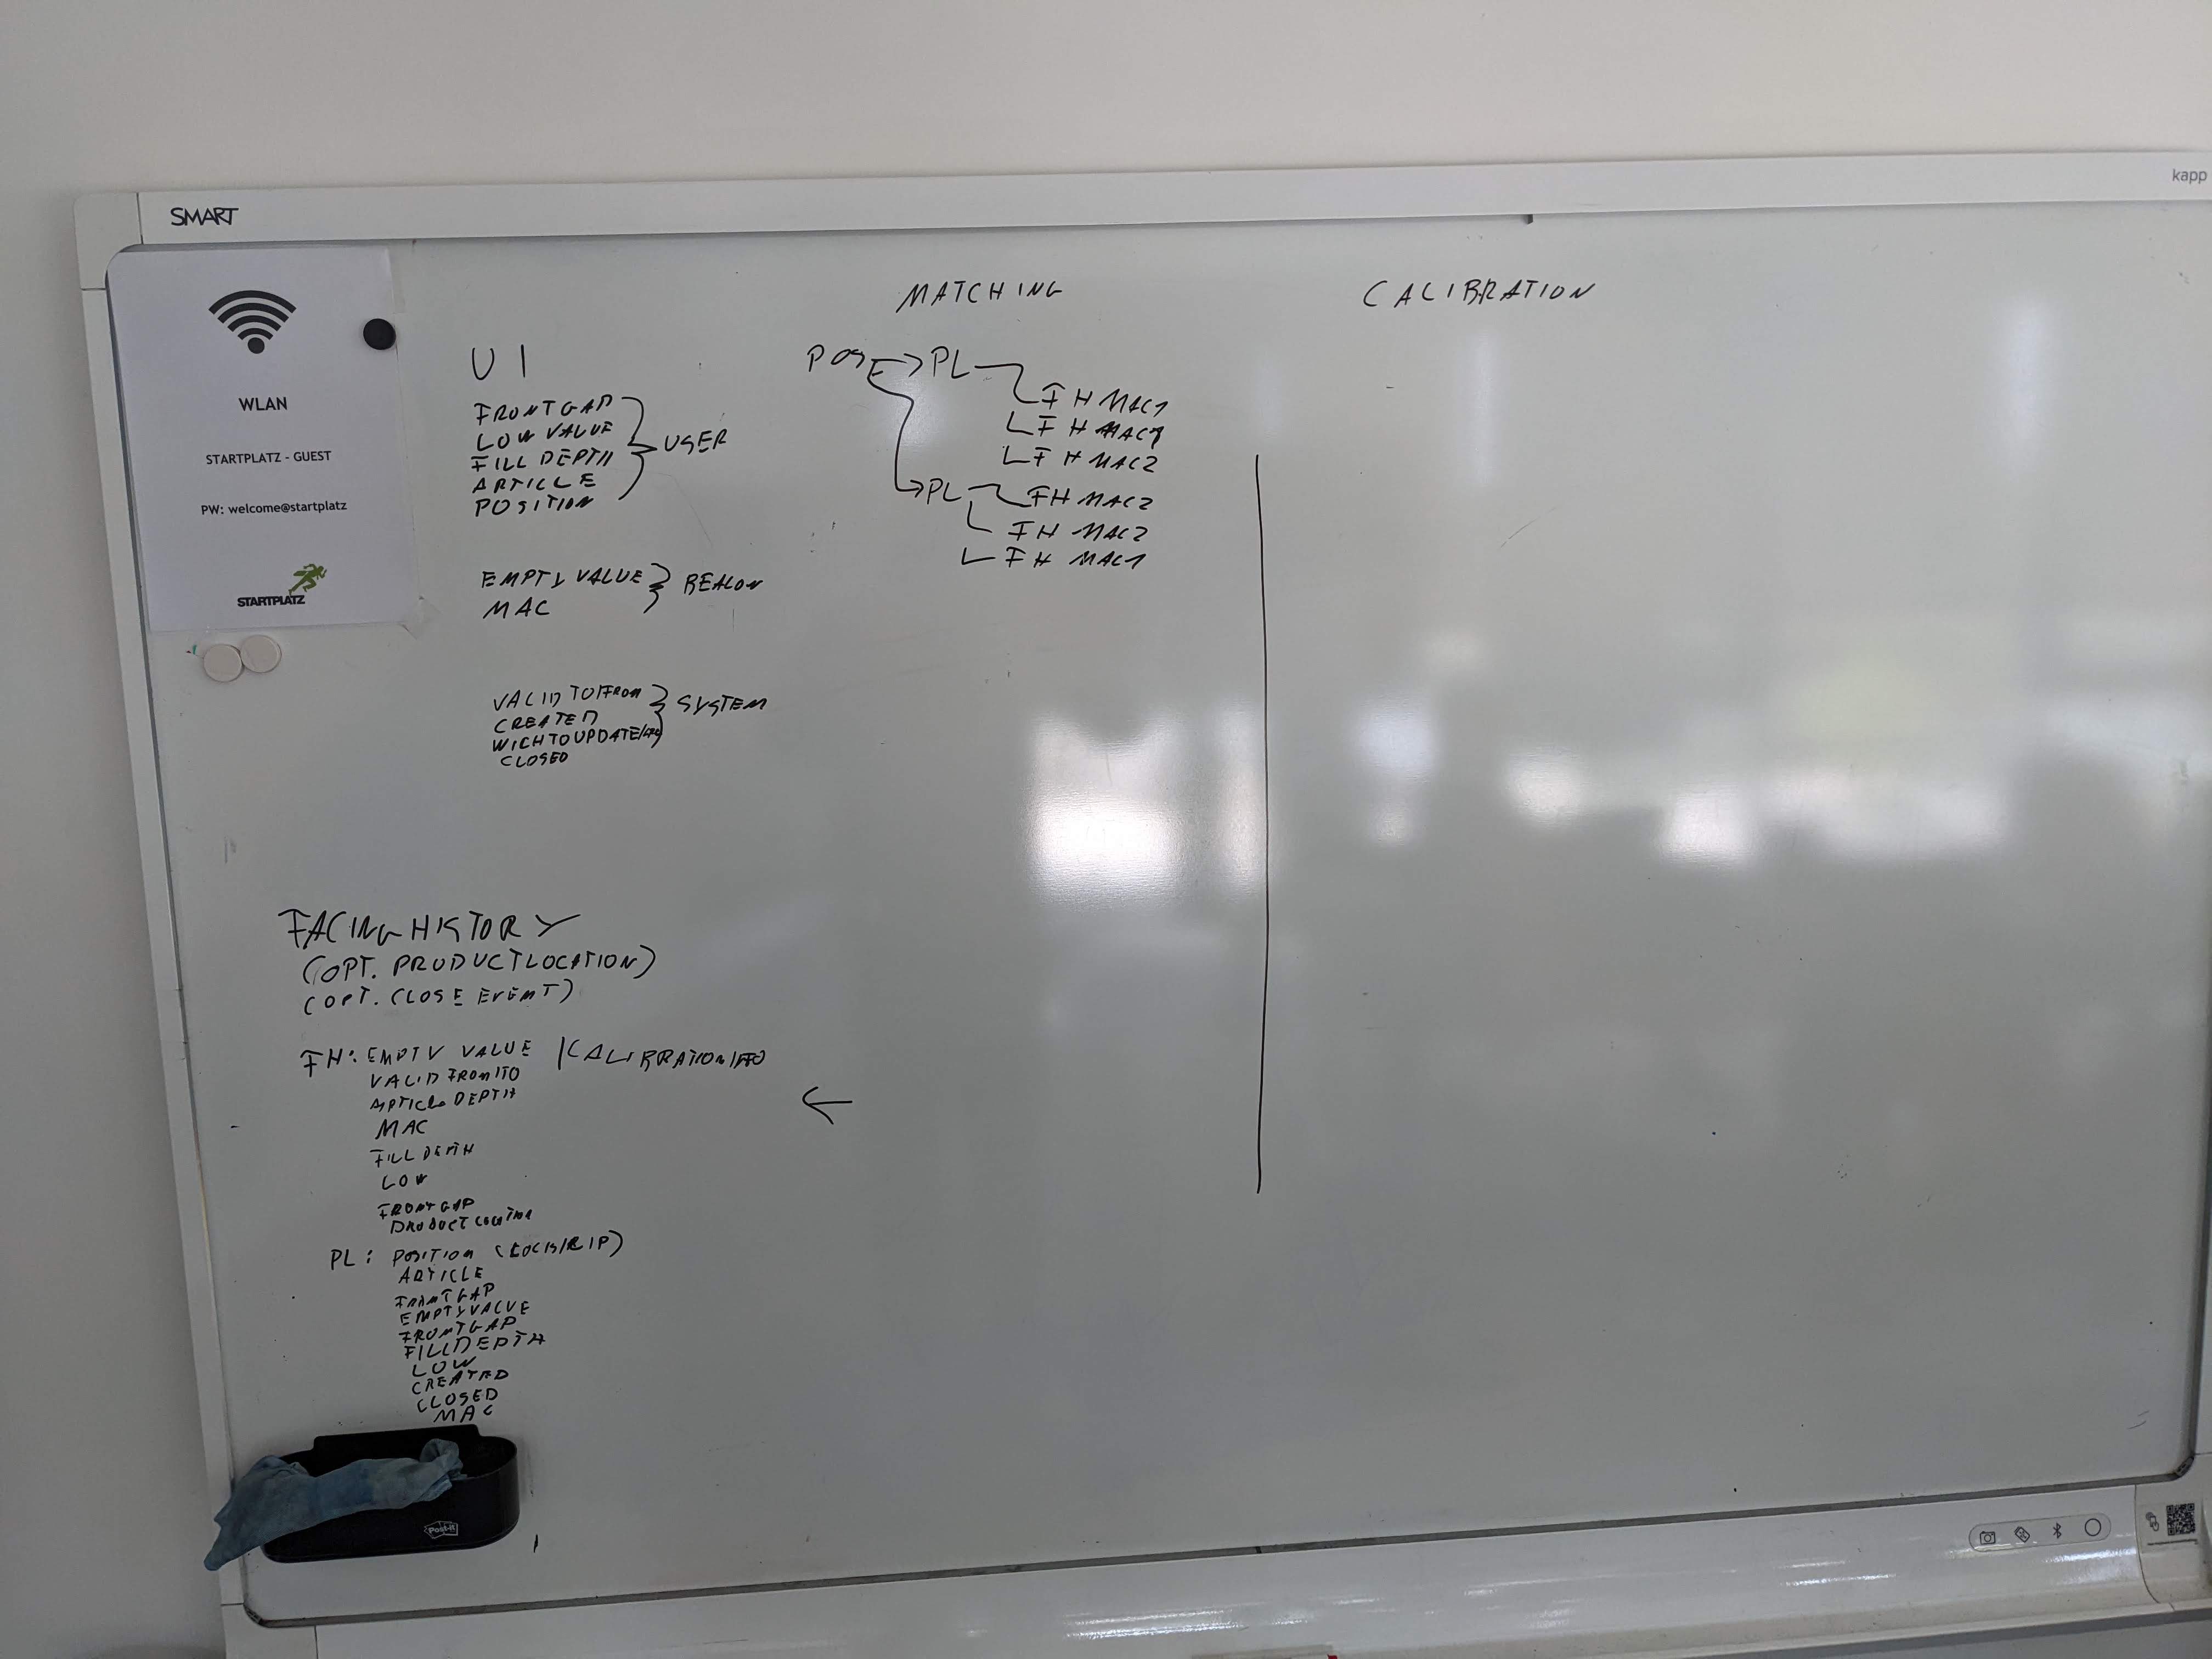 SMART
kapp
WLAN
STARTPLATZ - GUEST
PW: welcome@startplatz
STARTPLATZ
UI
FRONTGAP
LOW VALUE
FILL DEPTH
ARTICLE
POSITION
USER
EMPTY VALUE
MAC
BEACON
VALID TO/FROM
CREATED
WICHTOUPDATE/
CLOSED
SYSTEM
MATCHING
POS
PL
FH MAC1
FH MAC1
FH MAC2
PL
FH MAC2
FH MAC2
FH MAC1
CALIBRATION
FACINGHISTORY
(OPT. PRODUCTLOCATION)
(OPT. CLOSE EVENT)
FH: EMPTY VALUE / CALIBRATION
VALID FROM/TO
ARTICLE DEPTH
MAC
FILL DEPTH
LOW
FRONTGAP
PRODUCT LOCATION
PL: POSITION
ARTICLE
FRONTGAP
EMPTYVALUE
FRONTGAP
FILLDEPTH
LOW
CREATED
CLOSED
MAC
Post-it